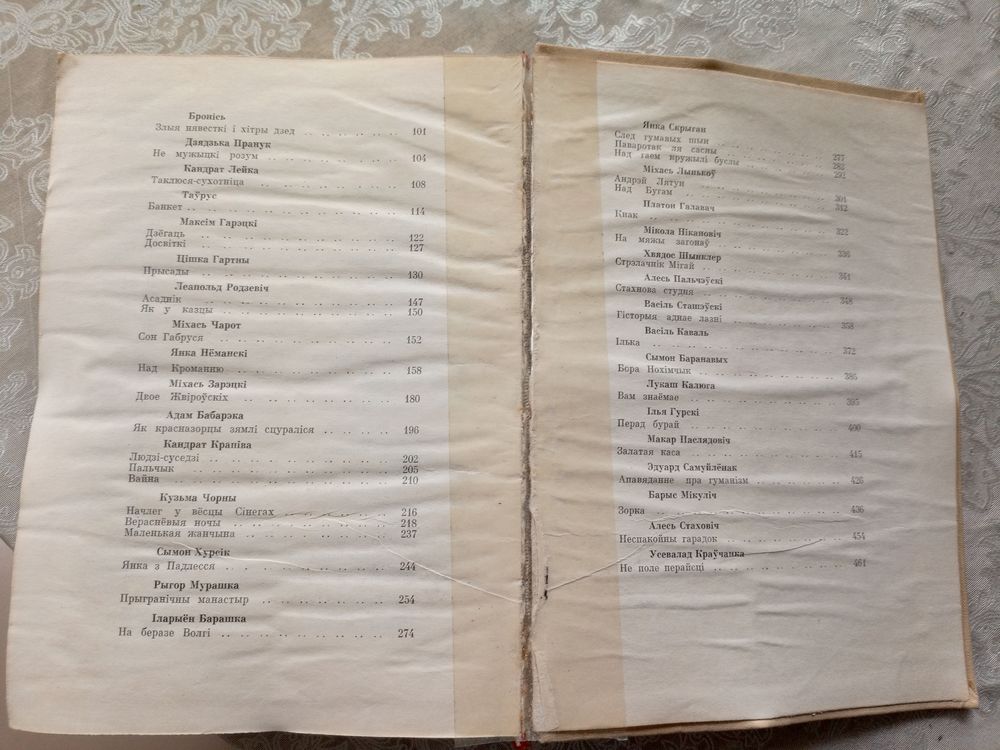 Бронісь
Злыя нявесткі і хітры дзед .. .. .. .. .. .. 101
Дзядзька Пранук
Не мужыцкі розум .. .. .. .. .. .. .. .. 104
Кандрат Лейка
Таклюся-сухотніца .. .. .. .. .. .. .. .. 108
Таўрус
Банкет .. .. .. .. .. .. .. .. .. .. .. 114
Максім Гарэцкі
Дзёгаць .. .. .. .. .. .. .. .. .. .. 122
Досвіткі .. .. .. .. .. .. .. .. .. .. 127
Цішка Гартны
Прысады .. .. .. .. .. .. .. .. .. .. 130
Леапольд Родзевіч
Асаднік .. .. .. .. .. .. .. .. .. .. 147
Як у казцы .. .. .. .. .. .. .. .. .. 150
Міхась Чарот
Сон Габруся .. .. .. .. .. .. .. .. .. 152
Янка Нёманскі
Над Кроманню .. .. .. .. .. .. .. .. 158
Міхась Зарэцкі
Двое Жвіроўскіх .. .. .. .. .. .. .. .. 180
Адам Бабарэка
Як красназорцы зямлі сцураліся .. .. .. .. .. 196
Кандрат Крапіва
Людзі-суседзі .. .. .. .. .. .. .. .. .. 202
Пальчык .. .. .. .. .. .. .. .. .. .. 205
Вайна .. .. .. .. .. .. .. .. .. .. .. 210
Кузьма Чорны
Начлег у вёсцы Сінегах .. .. .. .. .. .. 216
Вераснёвыя ночы .. .. .. .. .. .. .. .. 218
Маленькая жанчына .. .. .. .. .. .. .. 237
Сымон Хурсік
Янка з Падлесся .. .. .. .. .. .. .. .. 244
Рыгор Мурашка
Прыгранічны манастыр .. .. .. .. .. .. .. 254
Іларыён Барашка
На беразе Волгі .. .. .. .. .. .. .. .. 274
Янка Скрыган
След гумавых шын .. .. .. .. .. .. 277
Паваротак ля сасны .. .. .. .. .. .. 283
Над гаем кружылі буслы .. .. .. .. .. 292
Міхась Лынькоў
Андрэй Лятун .. .. .. .. .. .. .. 301
Над Бугам .. .. .. .. .. .. .. .. 312
Платон Галавач
Кнак .. .. .. .. .. .. .. .. .. .. 322
Мікола Нікановіч
На мяжы загонаў .. .. .. .. .. .. .. 336
Хвядос Шынклер
Стрэлачнік Мігай .. .. .. .. .. .. .. 341
Алесь Пальчэўскі
Стахнова студня .. .. .. .. .. .. .. 348
Васіль Сташэўскі
Гісторыя аднае лазні .. .. .. .. .. .. 358
Васіль Каваль
Ілька .. .. .. .. .. .. .. .. .. .. 372
Сымон Баранавых
Бора Нохімчык .. .. .. .. .. .. .. .. 386
Лукаш Калюга
Вам знаёмае .. .. .. .. .. .. .. .. 395
Ілья Гурскі
Перад бурай .. .. .. .. .. .. .. .. 400
Макар Паслядовіч
Залатая каса .. .. .. .. .. .. .. .. 415
Эдуард Самуйлёнак
Апавяданне пра гуманізм .. .. .. .. .. 426
Барыс Мікуліч
Зорка .. .. .. .. .. .. .. .. .. .. 436
Алесь Стаховіч
Неспакойны гарадок .. .. .. .. .. .. 454
Усевалад Краўчанка
Не поле перайсці .. .. .. .. .. .. .. 461